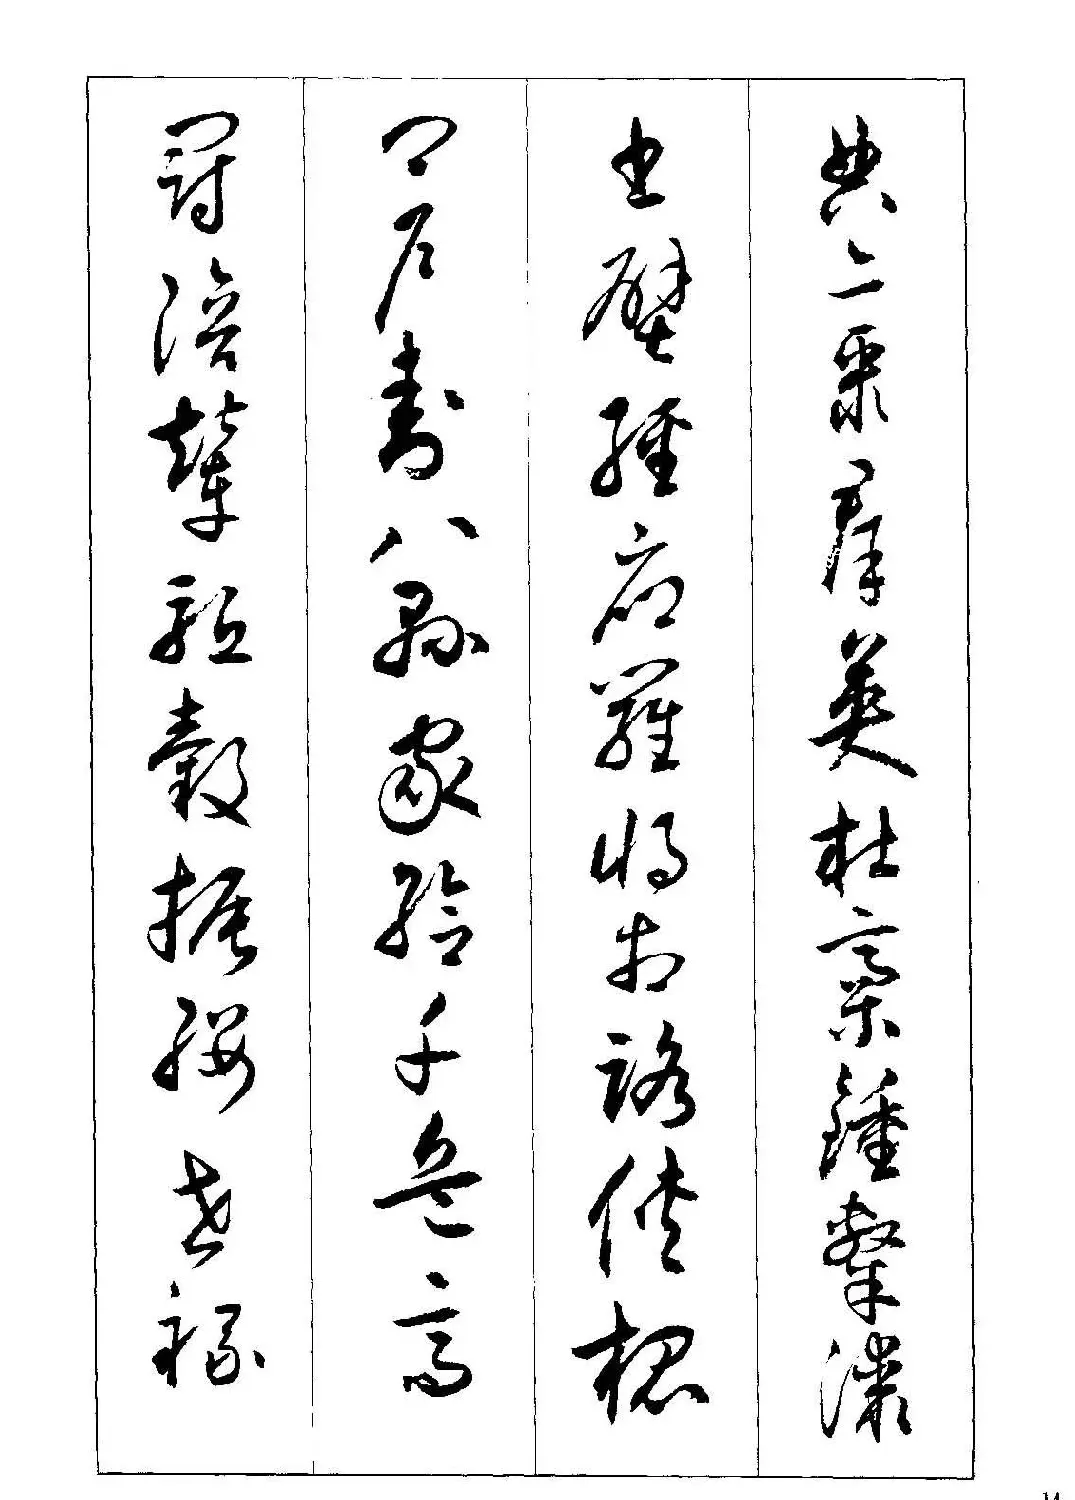 典亦聚群英杜稾鍾隸漆
書壁經府羅將相路俠槐
卿戶封八縣家給千兵高
冠陪輦驅轂振纓世祿